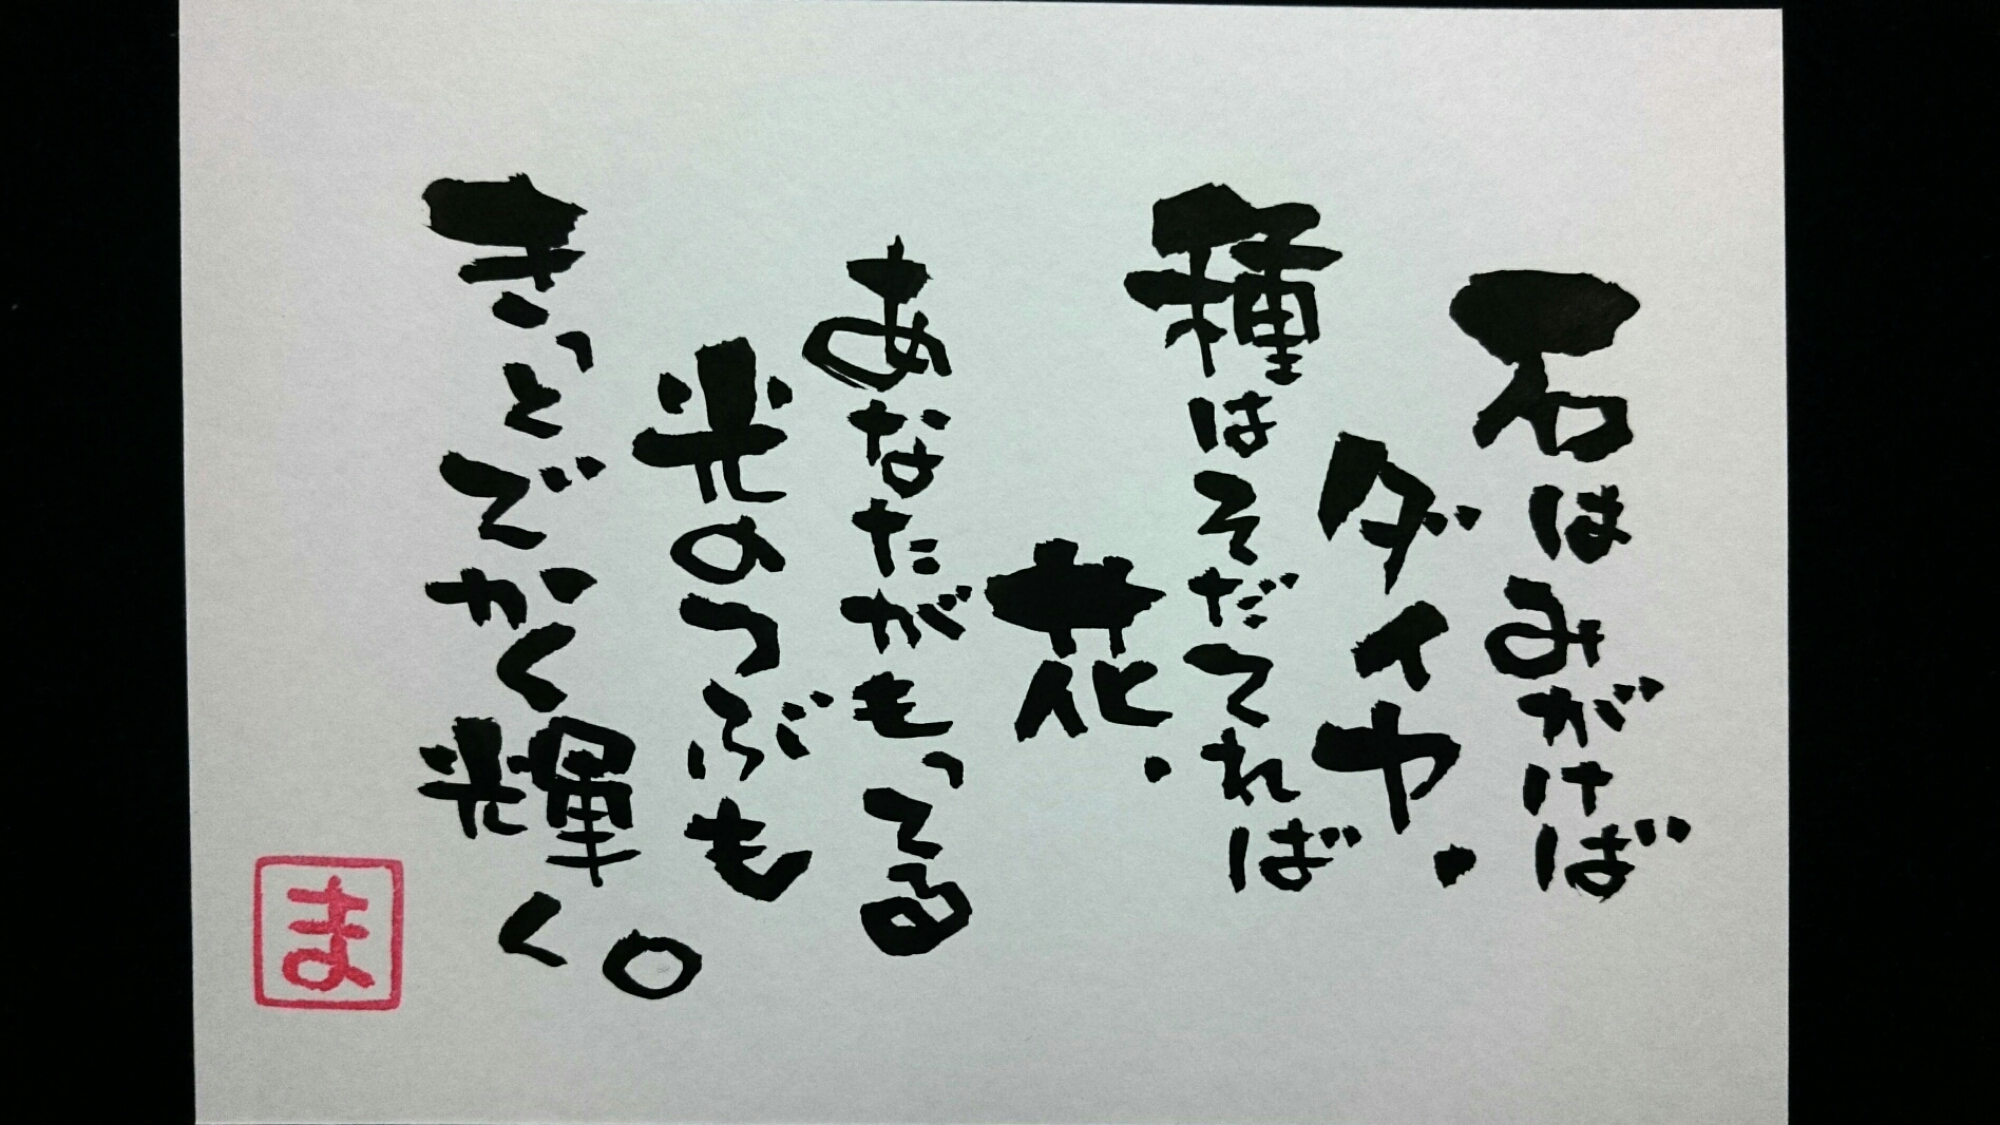 石はみがけば
ダイヤ.
種はそだてれば
花.
あなたがもってる
光のつぶも
きっとでかく輝く。
ま